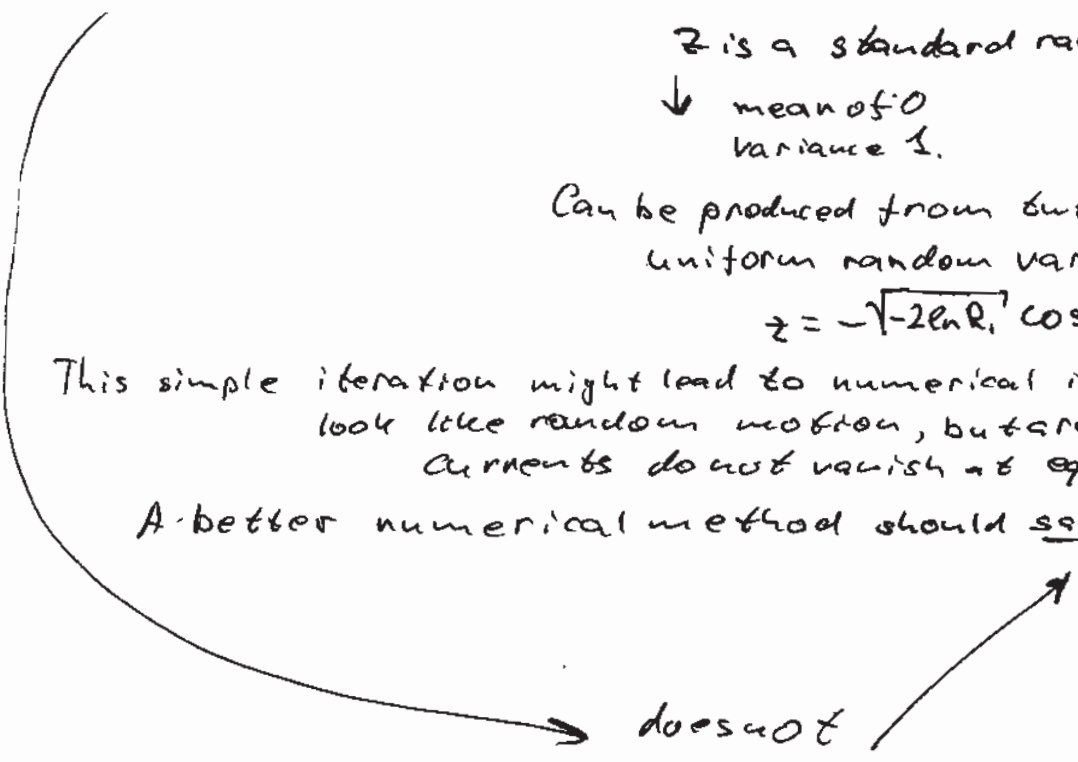 z is a standard ra
↓ mean of 0
variance 1.
Can be produced from tw
uniform random var
z = -√-2lnR₁ cos
This simple iteration might lead to numerical i
look like random motion, but ar
currents do not vanish at eq
A better numerical method should sa
does not